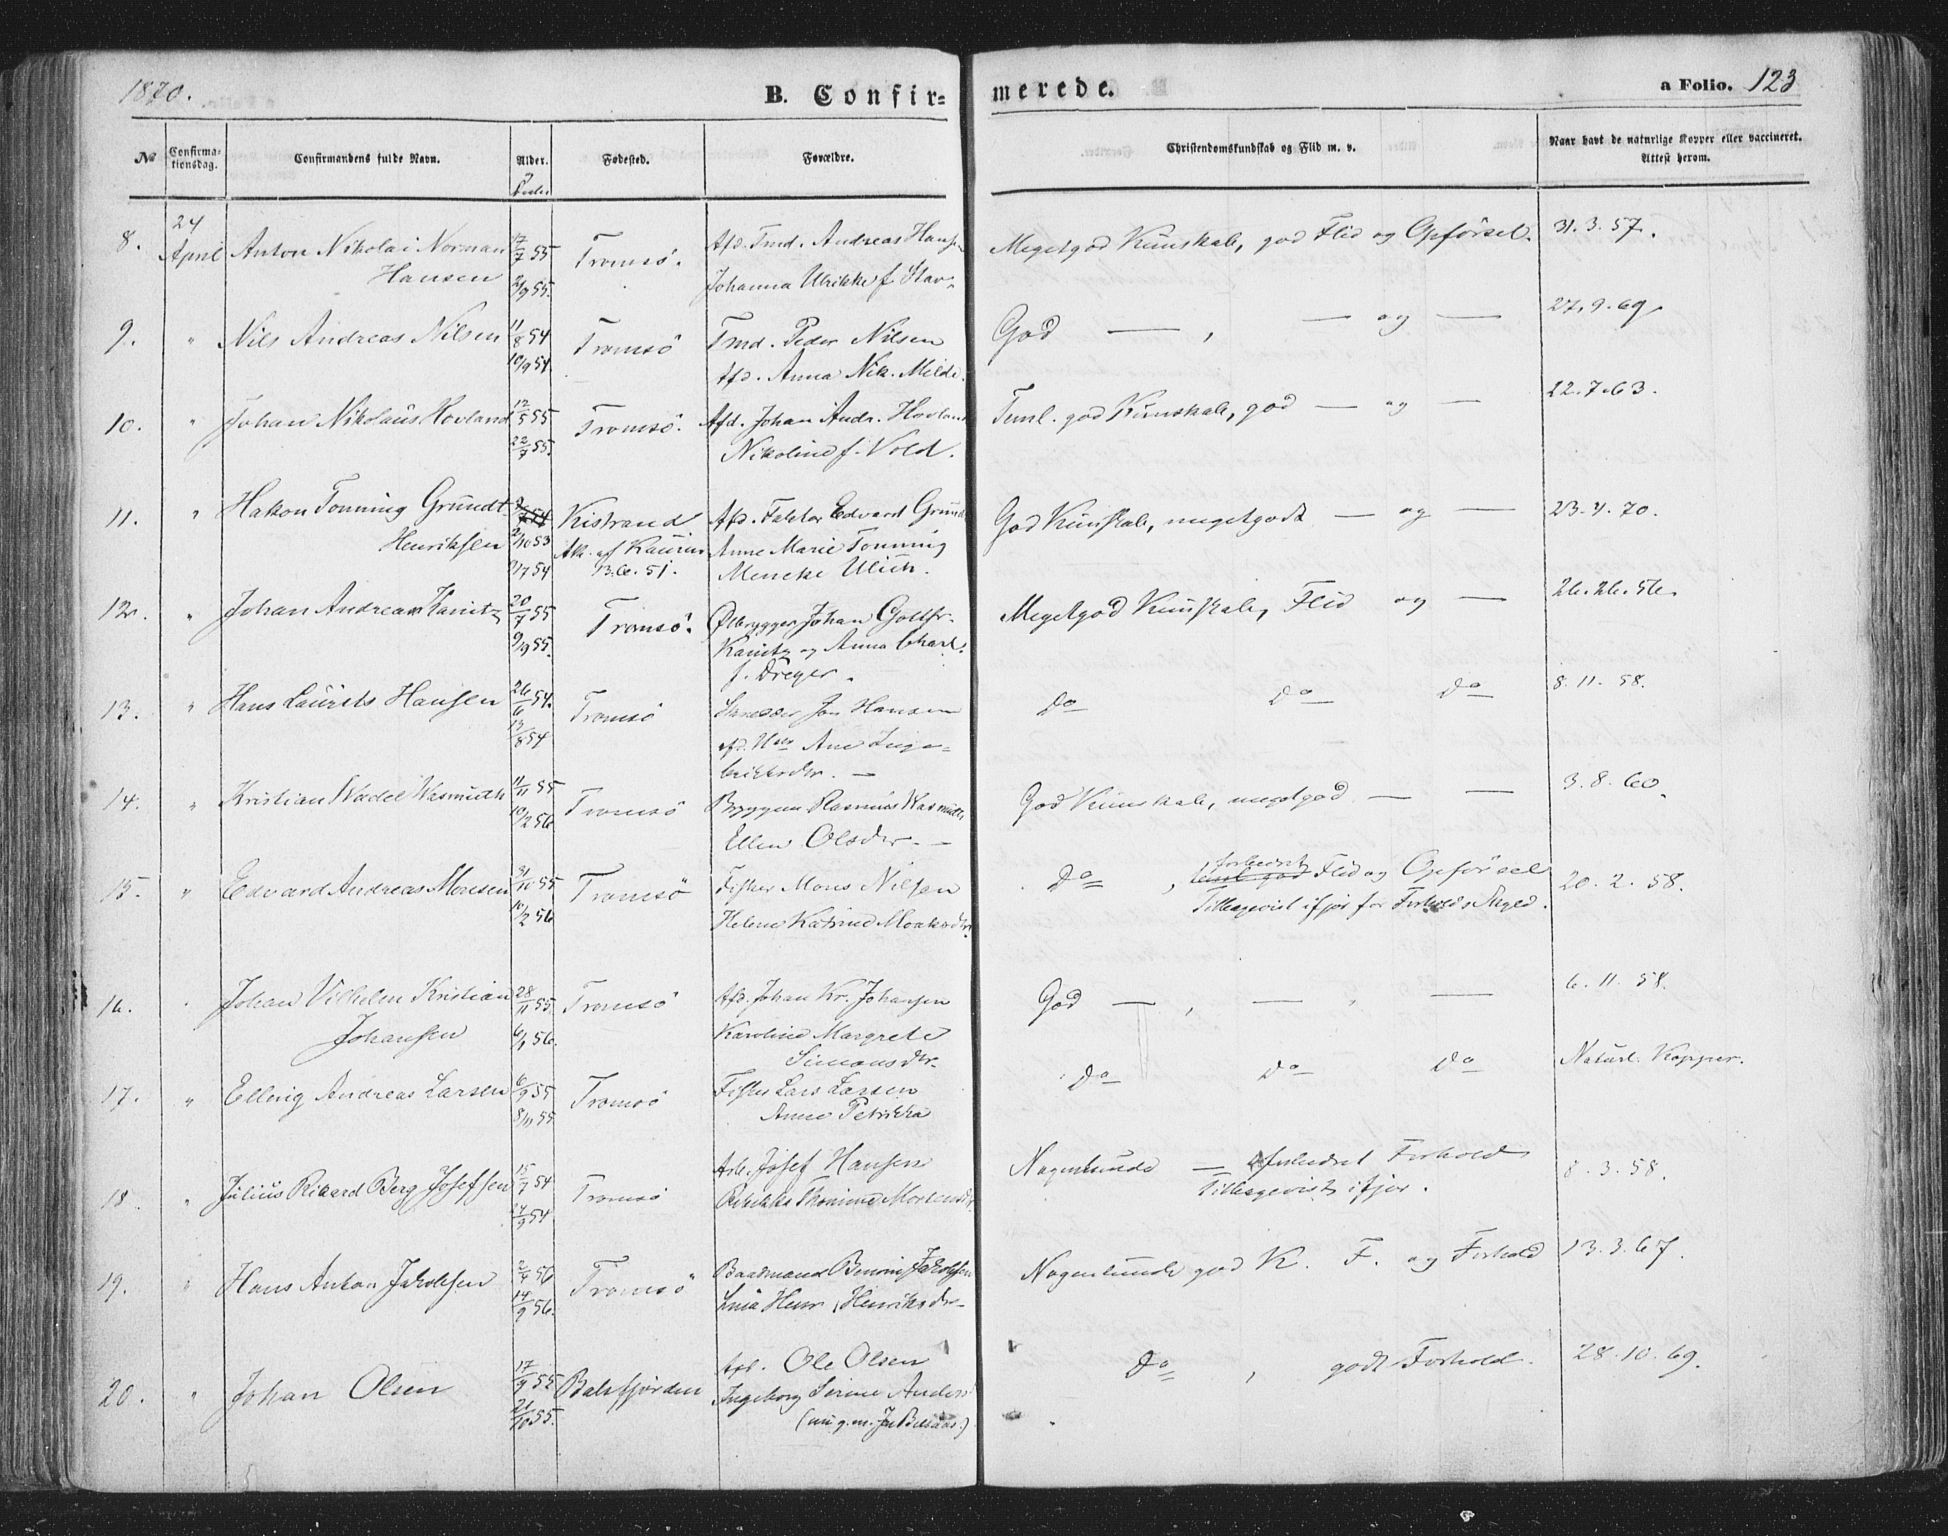 1870.
B. Confirmerede.
a Folio. 123
No
Confirmationsdag.
Confirmandens fulde Navn.
Alder.
Fødested.
Forældre.
Christendomskundskab og Flid m. v.
Naar havt de naturlige Kopper eller vaccineret. Attest herom.
8. 24 April Anton Nikolai Norman 17/7 55 Tromsö. Afd. Tmd. Andreas Hansen Megetgod Kunskab, god Flid og Opförsel. 31.3.57.
Hansen 2/9 55. Johanna Ulrikke f.
9. " Nils Andreas Nilsen 11/8 54 Tromsö Tmd. Peder Nilsen God — , — og — 27.9.69
10/9 54. Afd. Anna Nik. Milde.
10. " Johan Nikolaus Hovland 12/5 55 Tromsö. Afd. Johan Andr. Hovland Teml. god Kunskab, god — og — 22.7.63.
22/7 55. Nikoline f. Vold.
11. " Hakon Tonning Grundt Kistrand Afd. Faktor Edvard Grundt God Kunskab, megetgodt — og — 23.4.70.
Henriksen 2/10 53 Anne Marie Tonning
2/7 54 51. Mencke Ulich.
12. " Johan Andreas Kanitz 20/7 55 Tromsö. Ølbrygger Johan Gottfr. Megetgod Kunskab, Flid og — 26.26.56.
9/9 55. Kanitz og Anna Charl.
f. Dreyer.
13. " Hans Laurits Hansen 26/6 54. Tromsö Jon Hansen Do Do Do 8.11.58.
13/8 54 afd. Ane Inge-
briktsdtr. —
14. " Kristian Wadel Wasmuth 11/11 55 Tromsö Bryggem Rasmus Wasmuth God Kunskab, megetgod — — 3.8.60.
10/2 56 Ellen Olsdtr. —
15. " Edvard Andreas Monsen 31/10 55 Tromsö Fisker Mons Nilsen Do , forbedret Flid og Opförsel 20.2.58.
10/2 56 Helene Katrine Tilbagevist ifjor for Forholds Skyld.
16. " Johan Vilhelm Kristian 28/11 55. Tromsö Afd. Johan Kr. Johansen God — , — , — 6.11.58.
Johansen 6/1 56. Karoline Margrete
Simonsdtr.
17. " Elling Andreas Larsen 6/9 55 Tromsö Fisker Lars Larsen Do Do Do Naturl. Kopper.
8/11 55 Anne Petrikka
18. " Julius Rikard Berg Josefsen 15/7 54 Tromsö Arb. Josef Hansen Nogenlunde — forbedret Forhold 8.3.58.
24/9 54 Thomine Mortensdtr. Tilbagevist ifjor.
19. " Hans Anton Jakobsen 56 Tromsö Baadmand Benoni Jakobsen Nogenlunde god K. F. og Forhold 13.3.67.
14/9 56. Henr. Henriksdtr.
20. " Johan Olsen 17/9 55 Balsfjorden Arb. Ole Olsen Do , godt Forhold. 28.10.69.
21/10 55. Ingeborg Serine Anders